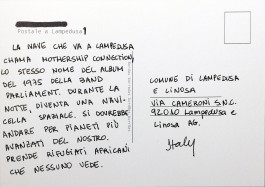 Postale a Lampedusa 1
LA NAVE CHE VA A LAMPEDUSA
CHIAMA MOTHERSHIP CONNECTION,
LO STESSO NOME DEL ALBUM
DEL 1975 DELLA BAND
PARLIAMENT. DURANTE LA
NOTTE, DIVENTA UNA NAVI-
CELLA SPAZIALE. SI DOVREBBE
ANDARE PER PIANETI PIÙ
AVANZATI DEL NOSTRO.
PRENDE RIFUGIATI AFRICANI
CHE NESSUNO VEDE.
COMUNE DI LAMPEDUSA
E LINOSA
VIA CAMERONI S.N.C.
92010 LAMPEDUSA e
LINOSA AG.
Italy